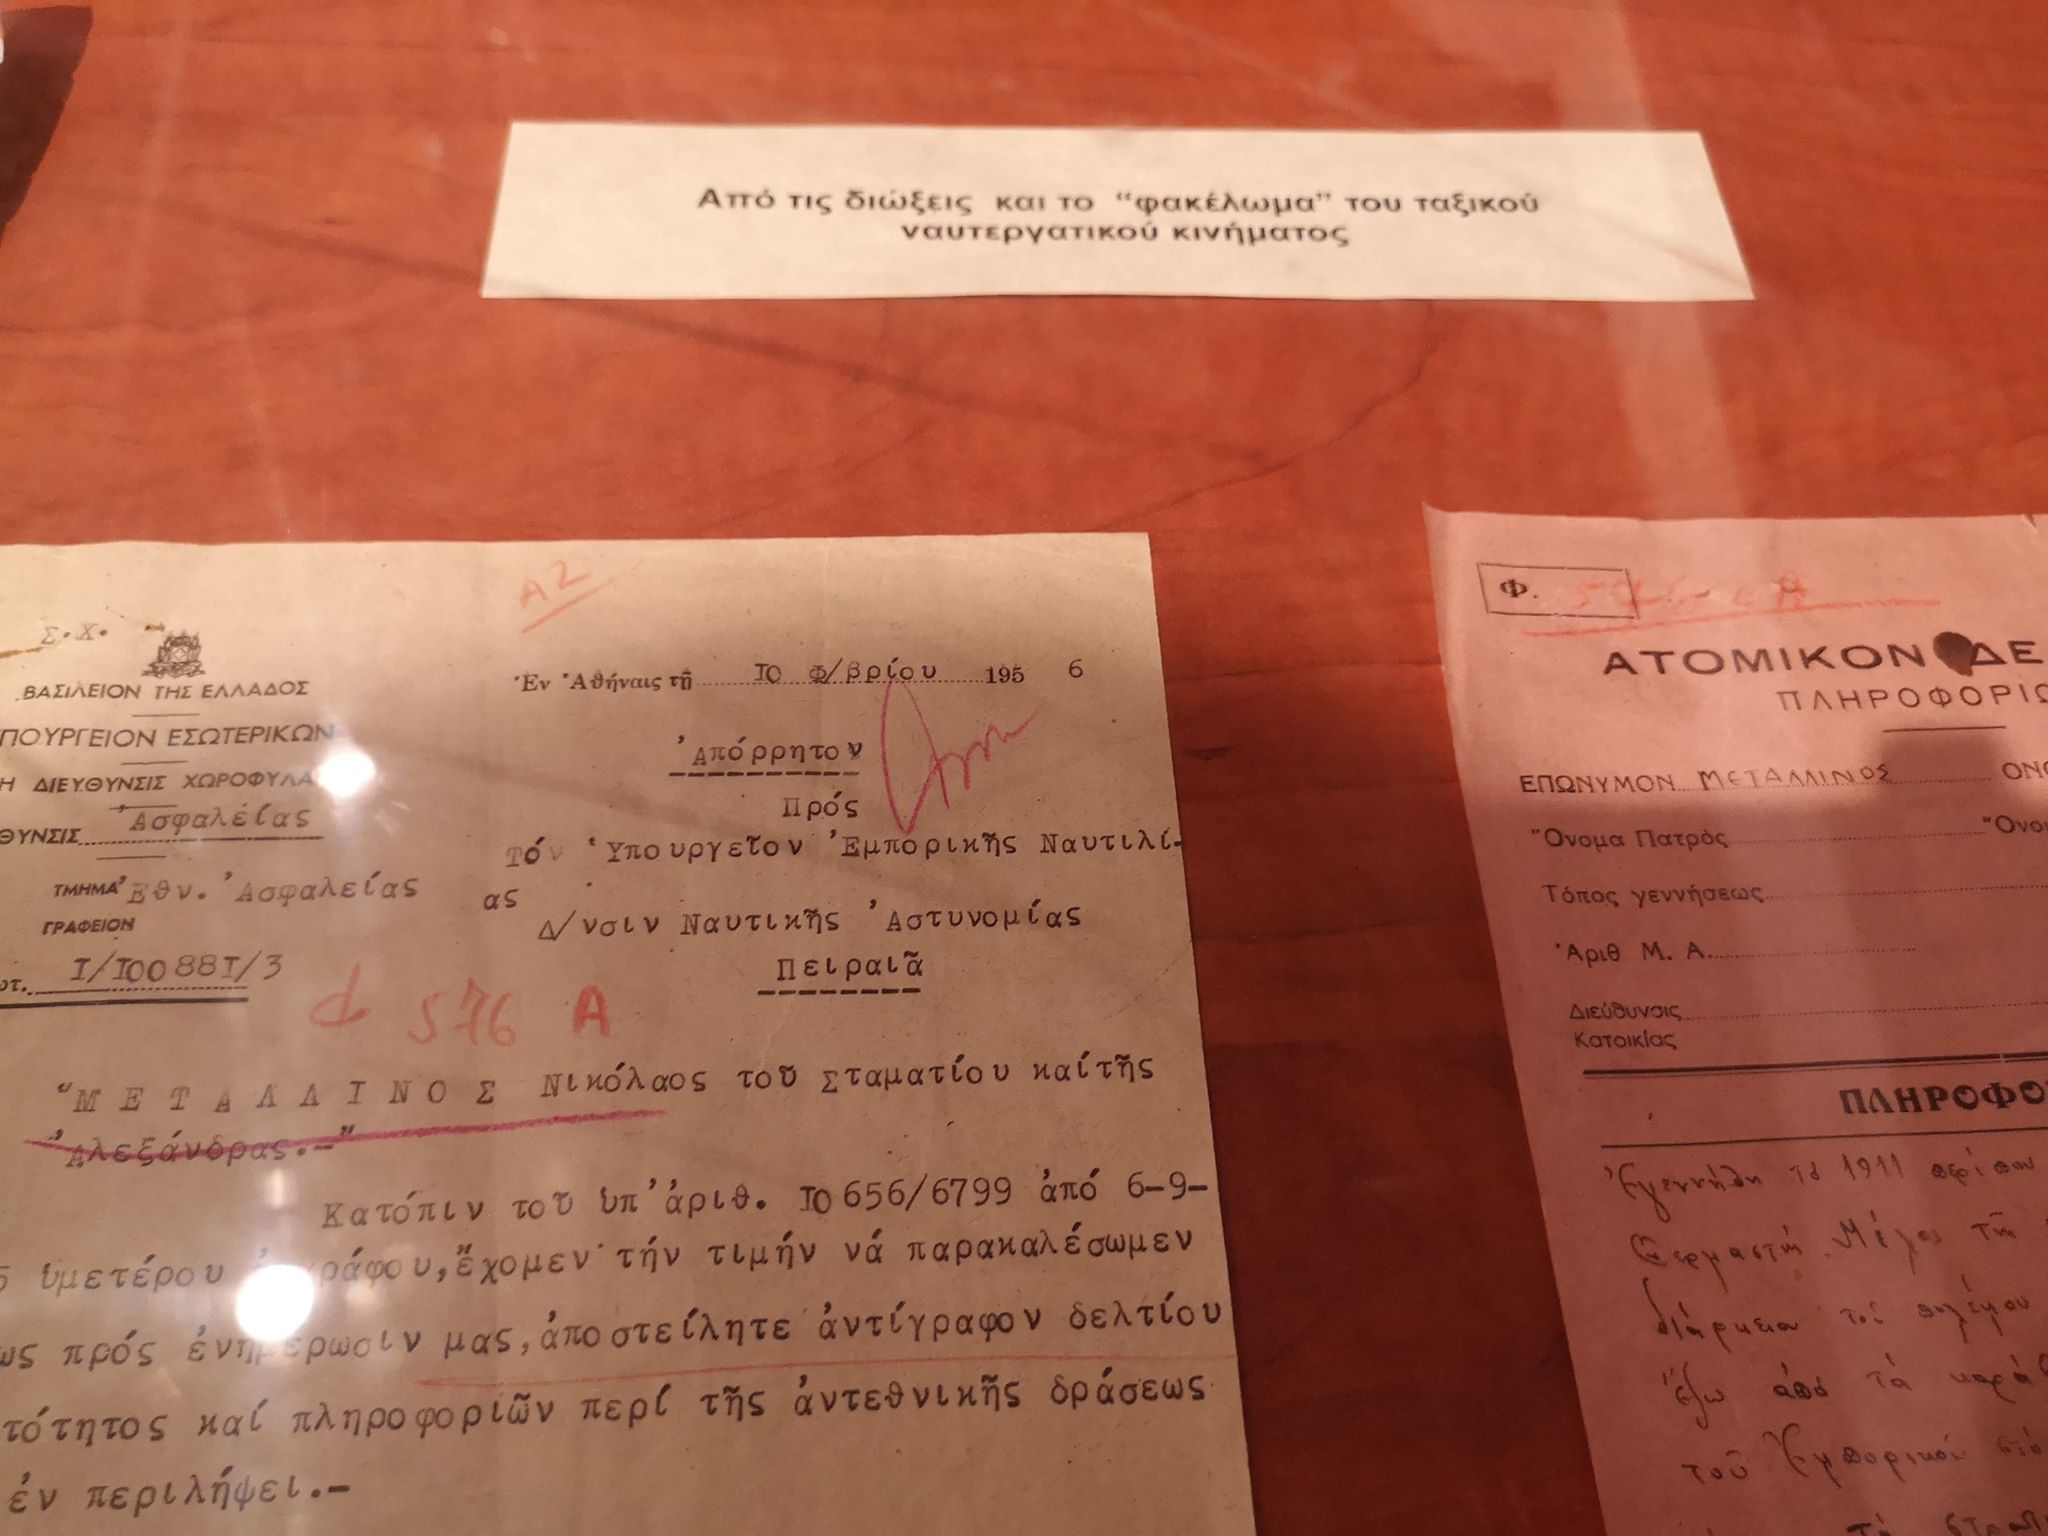 Από τις διώξεις και το "φακέλωμα" του ταξικού
ναυτεργατικού κινήματος
Α2
Σ.Χ.
ΒΑΣΙΛΕΙΟΝ ΤΗΣ ΕΛΛΑΔΟΣ
ΠΟΥΡΓΕΙΟΝ ΕΣΩΤΕΡΙΚΩΝ
Η ΔΙΕΥΘΥΝΣΙΣ ΧΩΡΟΦΥΛΑ
ΘΥΝΣΙΣ Ἀσφαλείας
ΤΜΗΜΑ Ἐθν. Ἀσφαλείας
ΓΡΑΦΕΙΟΝ
ωτ. Ι/ΙΟΟ88Ι/3
Ἐν Ἀθήναις τῇ ΙΟ Φ/βρίου 1956
Ἀπόρρητον
Πρός
Τόν Ὑπουργεῖον Ἐμπορικῆς Ναυτιλί-
ας
Δ/νσιν Ναυτικῆς Ἀστυνομίας
Πειραιᾶ
576 Α
"ΜΕΤΑΛΛΙΝΟΣ Νικόλαος τοῦ Σταματίου καί τῆς
Ἀλεξάνδρας.-"
Κατόπιν τοῦ ὑπ' ἀριθ. ΙΟ656/6799 ἀπό 6-9-
5 ὑμετέρου ἐγγράφου, ἔχομεν τήν τιμήν νά παρακαλέσωμεν
ως πρός ἐνημέρωσιν μας, ἀποστείλητε ἀντίγραφον δελτίου
τότητος καί πληροφοριῶν περί τῆς ἀντεθνικῆς δράσεως
ἐν περιλήψει.-
Φ.
ΑΤΟΜΙΚΟΝ ΔΕ
ΠΛΗΡΟΦΟΡΙΩ
ΕΠΩΝΥΜΟΝ ΜΕΤΑΛΛΙΝΟΣ ΟΝΟ
Ὄνομα Πατρός Ὄνο
Τόπος γεννήσεως
Ἀριθ Μ. Α.
Διεύθυνσις
Κατοικίας
ΠΛΗΡΟΦΟ
Ἐγεννήθη τό 1911 περίπου
Μέλος τῆς
διάρκεια τοῦ πολέμου
ἔξω ἀπό τά καρά
τοῦ Ἐμπορικοῦ στό